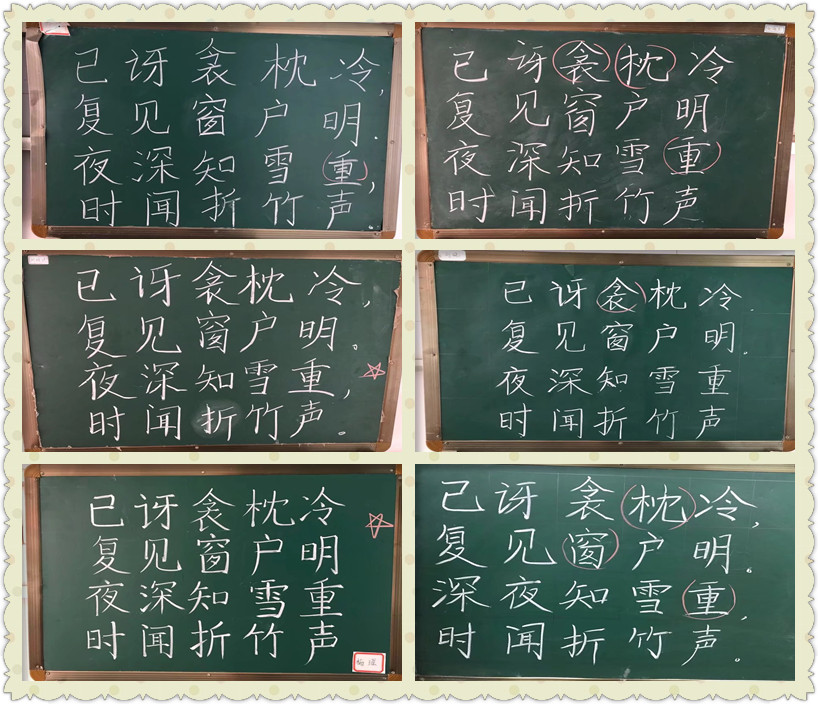 已讶衾枕冷，
复见窗户明.
夜深知雪重，
时闻折竹声。
已讶衾枕冷
复见窗户明
夜深知雪重
时闻折竹声
已讶衾枕冷，
复见窗户明。
夜深知雪重，
时闻折竹声。
已讶衾枕冷.
复见窗户明。
夜深知雪重
时闻折竹声
已讶衾枕冷
复见窗户明
夜深知雪重
时闻折竹声
已讶衾枕冷，
复见窗户明。
深夜知雪重，
时闻折竹声。